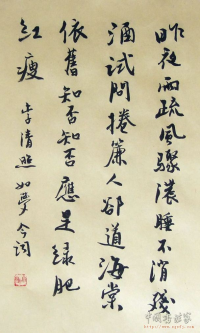 昨夜雨疏風驟濃睡不消殘
酒試問捲簾人卻道海棠
依舊知否知否應是綠肥
紅瘦 李清照如夢令詞